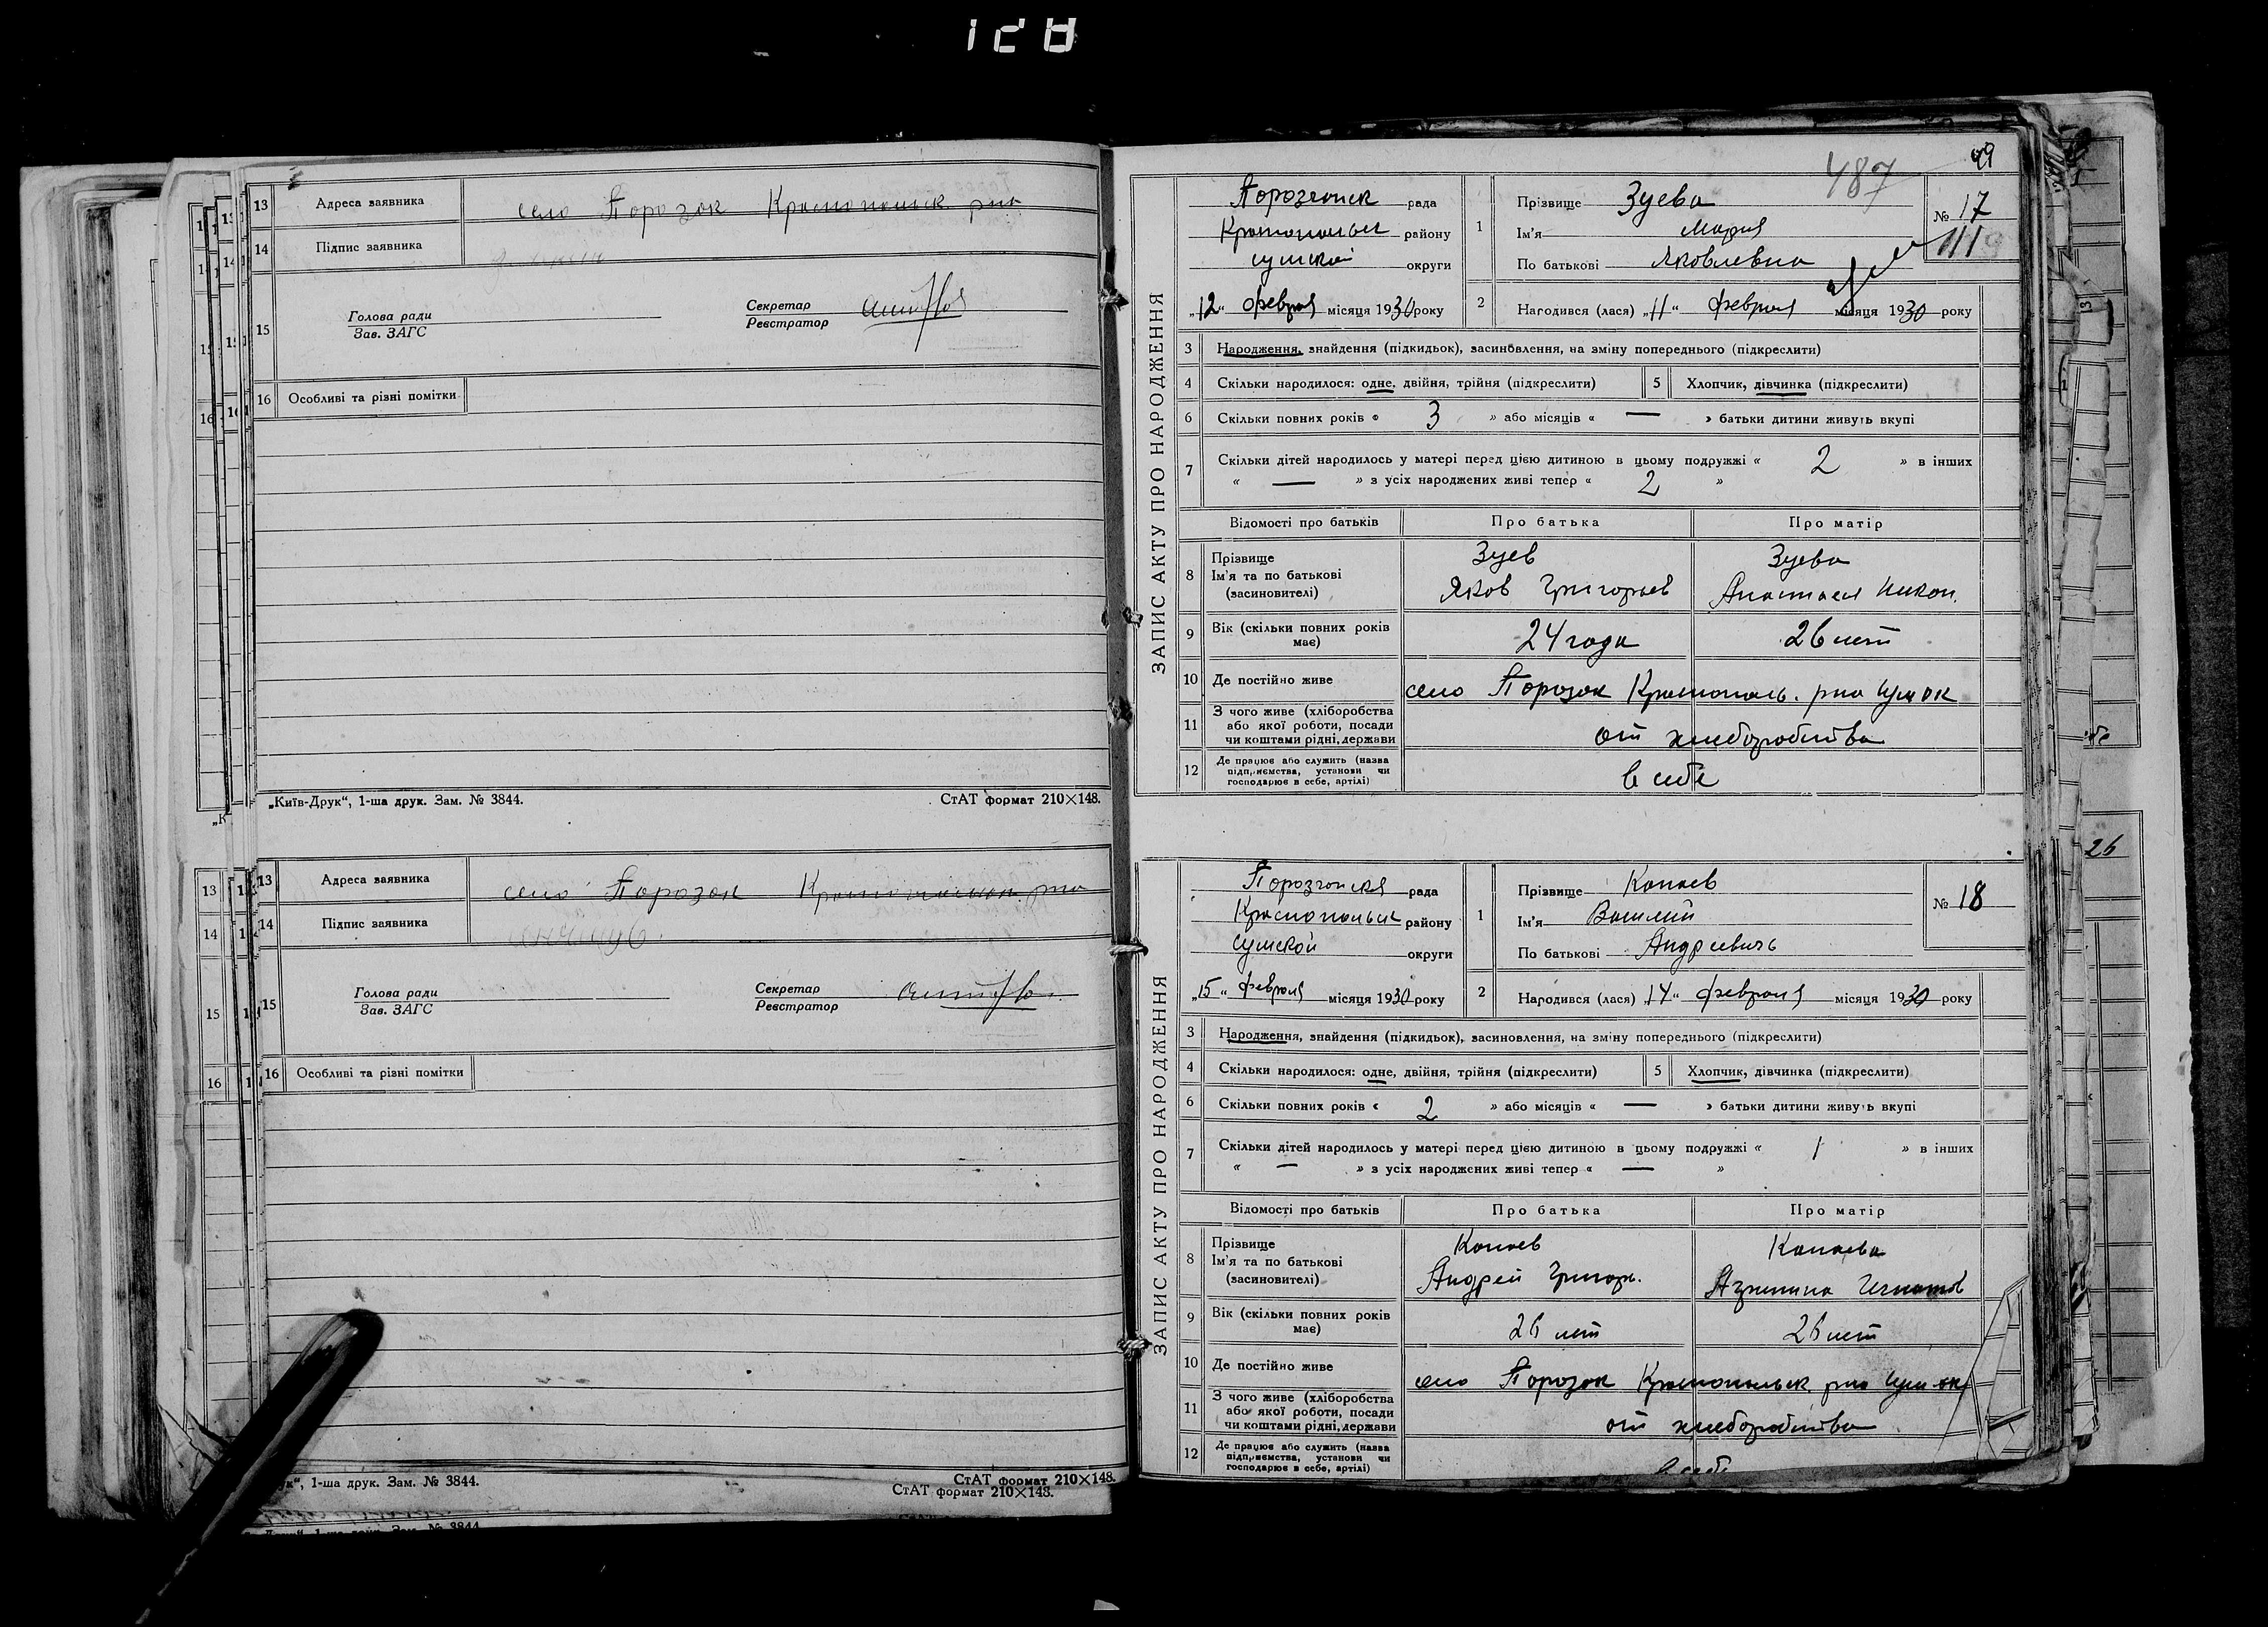 128
13 Адреса заявника село Порозок Краснопольск рна
14 Підпис заявника
15 Голова ради
Зав. ЗАГС
Секретар
Реєстратор
16 Особливі та різні помітки
„Київ-Друк“, 1-ша друк. Зам. № 3844. СтАТ формат 210×148.
13 Адреса заявника село Порозок Краснопольск рна
14 Підпис заявника
15 Голова ради
Зав. ЗАГС
Секретар
Реєстратор
16 Особливі та різні помітки
1-ша друк. Зам. № 3844. СтАТ формат 210×148.
СтАТ формат 210×148.
487
ЗАПИС АКТУ ПРО НАРОДЖЕННЯ
Порозконск рада
Краснопольск району
сумской округи
„12“ февраля місяця 1930 року
1 Прізвище Зуева
Ім'я Мария
По батькові Яковлевна
№ 17
2 Народився (лася) „11“ февраля місяця 1930 року
3 Народження, знайдення (підкидьок), засиновлення, на зміну попереднього (підкреслити)
4 Скільки народилося: одне, двійня, трійня (підкреслити) 5 Хлопчик, дівчинка (підкреслити)
6 Скільки повних років « 3 » або місяців « — » батьки дитини живуть вкупі
7 Скільки дітей народилось у матері перед цією дитиною в цьому подружжі « 2 » в інших
« — » з усіх народжених живі тепер « 2 »
Відомості про батьків Про батька Про матір
8 Прізвище Зуев Зуева
Ім'я та по батькові Яков Григорьев Анастасия Никон.
(засиновителі)
9 Вік (скільки повних років має) 24 года 26 лет
10 Де постійно живе село Порозок Краснополь. рна Сум ок
11 З чого живе (хліборобства
або якої роботи, посади
чи коштами рідні, держави от хлеборобства
12 Де працює або служить (назва
підприємства, установи чи
господарює в себе, артілі) в себе
ЗАПИС АКТУ ПРО НАРОДЖЕННЯ
Порозконская рада
Краснопольск району
сумской округи
„15“ февраля місяця 1930 року
1 Прізвище Копаев
Ім'я Василий
По батькові Андреевичь
№ 18
2 Народився (лася) „14“ февраля місяця 1930 року
3 Народження, знайдення (підкидьок), засиновлення, на зміну попереднього (підкреслити)
4 Скільки народилося: одне, двійня, трійня (підкреслити) 5 Хлопчик, дівчинка (підкреслити)
6 Скільки повних років « 2 » або місяців « — » батьки дитини живуть вкупі
7 Скільки дітей народилось у матері перед цією дитиною в цьому подружжі « 1 » в інших
« — » з усіх народжених живі тепер « — »
Відомості про батьків Про батька Про матір
8 Прізвище Копаев Копаева
Ім'я та по батькові Андрей Григорь.
(засиновителі)
9 Вік (скільки повних років має) 26 лет 26 лет
10 Де постійно живе село Порозок Краснопольск. рна Сум ок
11 З чого живе (хліборобства
або якої роботи, посади
чи коштами рідні, держави от хлеборобства
12 Де працює або служить (назва
підприємства, установи чи
господарює в себе, артілі)
26